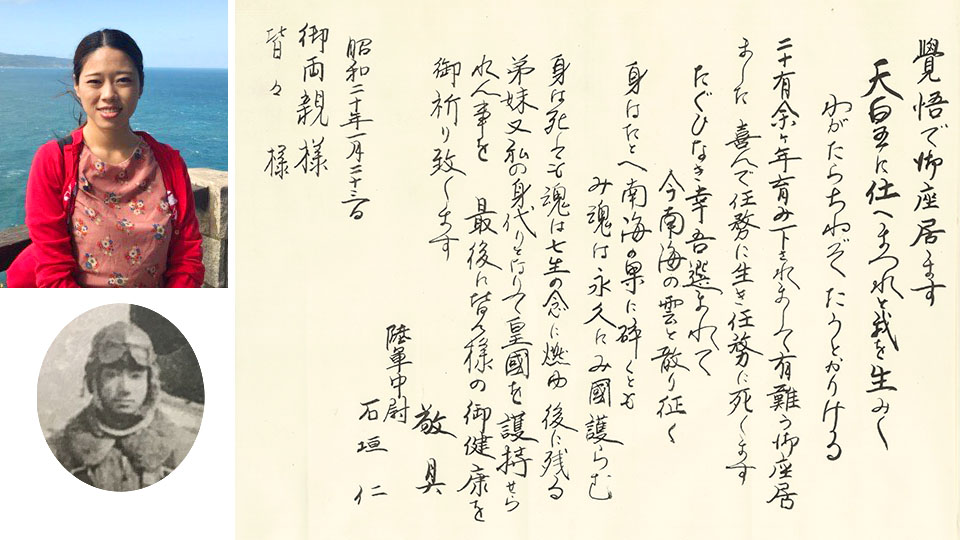 覺悟で御座居ます
天皇に仕へまつれと我を生みし
わがたらちねぞたうとかりける
二十有余ヶ年育み下されまして有難う御座居
ました 喜んで任務に生き任務に死します
たぐひなき幸吾選まれて
今南海の雲と散り征く
身はたとへ南海の果に碎くとも
み魂は永久にみ國護らむ
身は死しても魂は七生の念に燃ゆ 後に残る
弟妹又私の身代りとなりて皇國を護持せら
れん事を 最後に皆々様の御健康を
御祈り致します
敬具
陸軍中尉
石垣 仁
昭和二十年一月二十三日
御両親様
皆々様